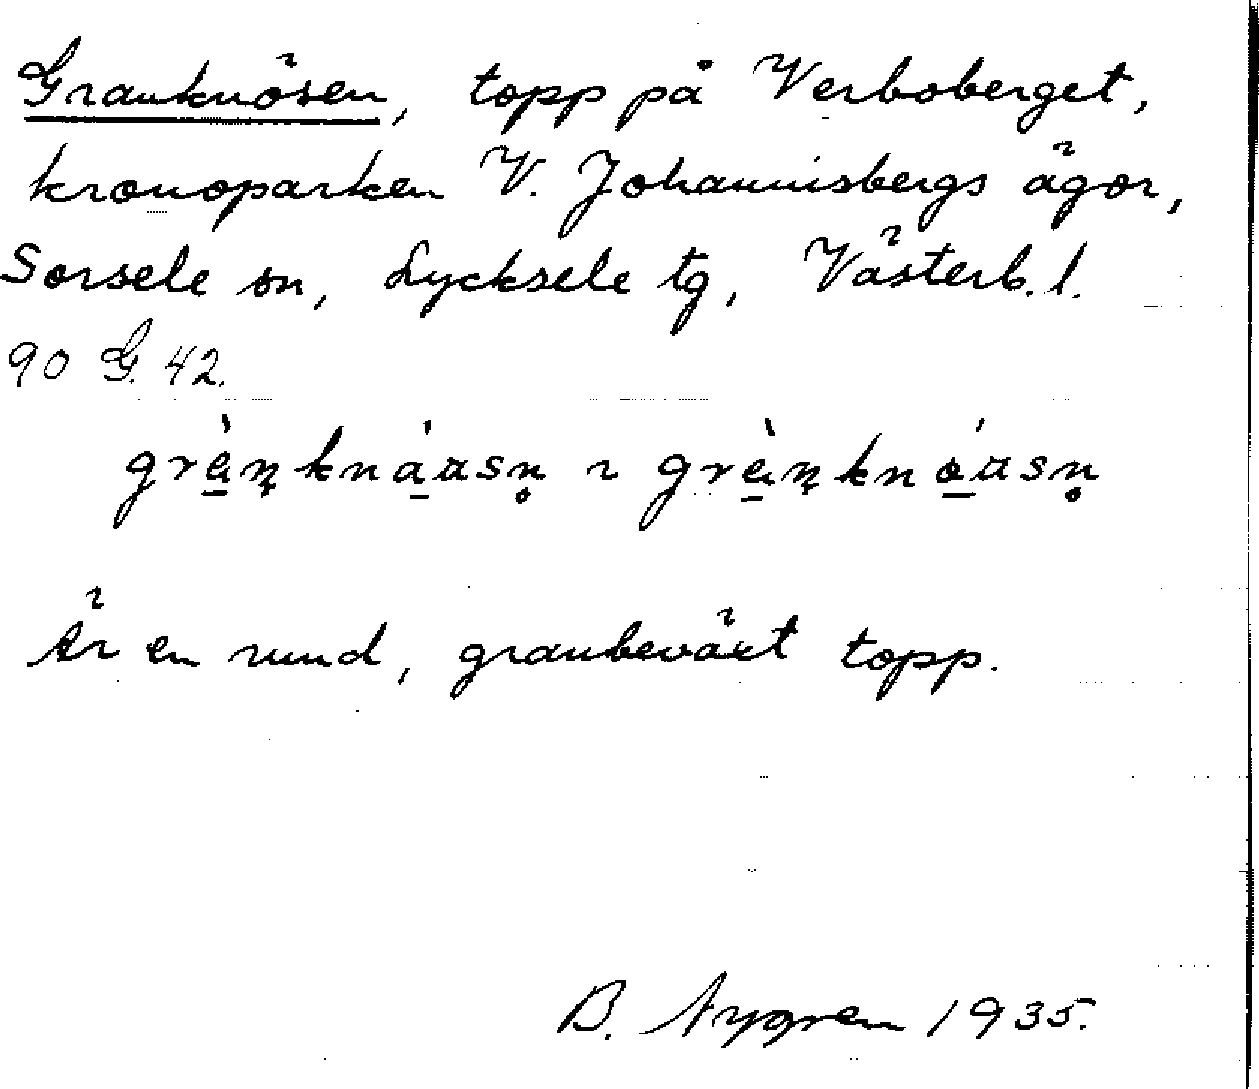 Granknösen, topp på Verboberget,
kronoparken V. Johannisbergs ägor,
Sorsele sn, Lycksele tg, Västerb. l.
90 G. 42.
Är en rund, granbeväxt topp.
B. Nygren 1935.